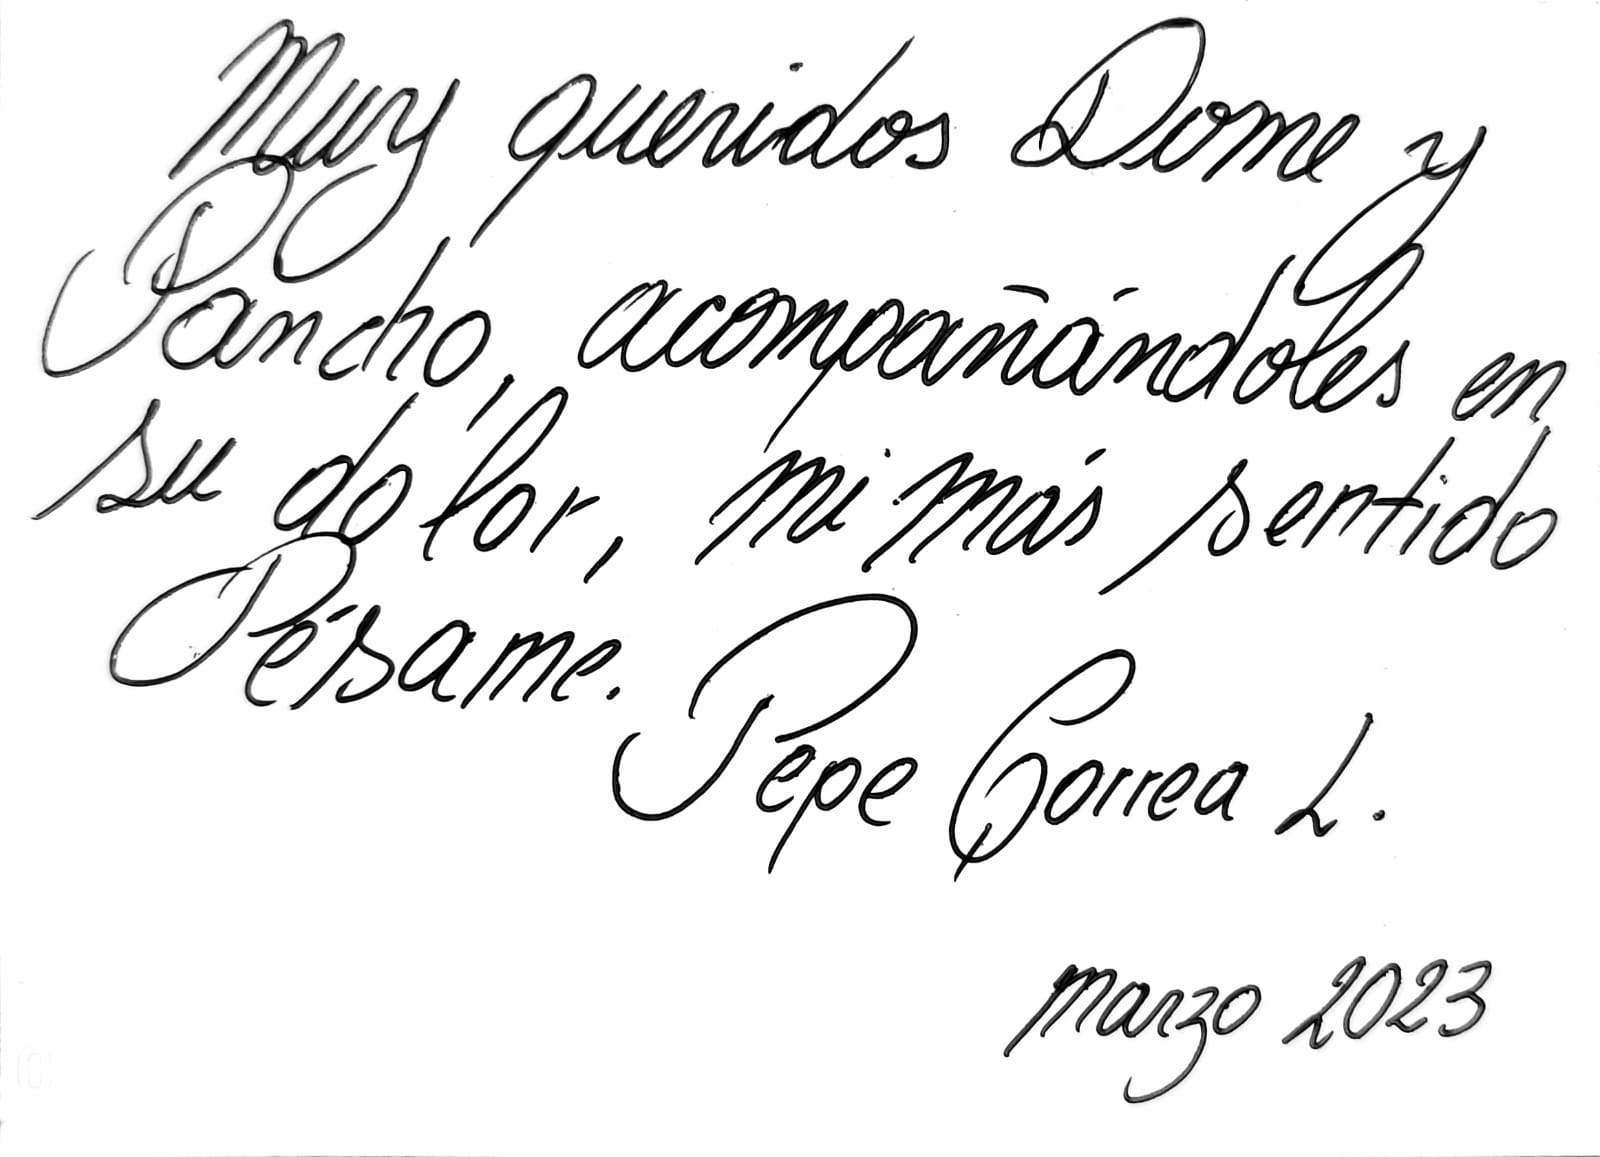 Muy queridos Dome y
Pancho, acompañándoles en
su dolor, mi más sentido
Pésame.
Pepe Correa L.
marzo 2023